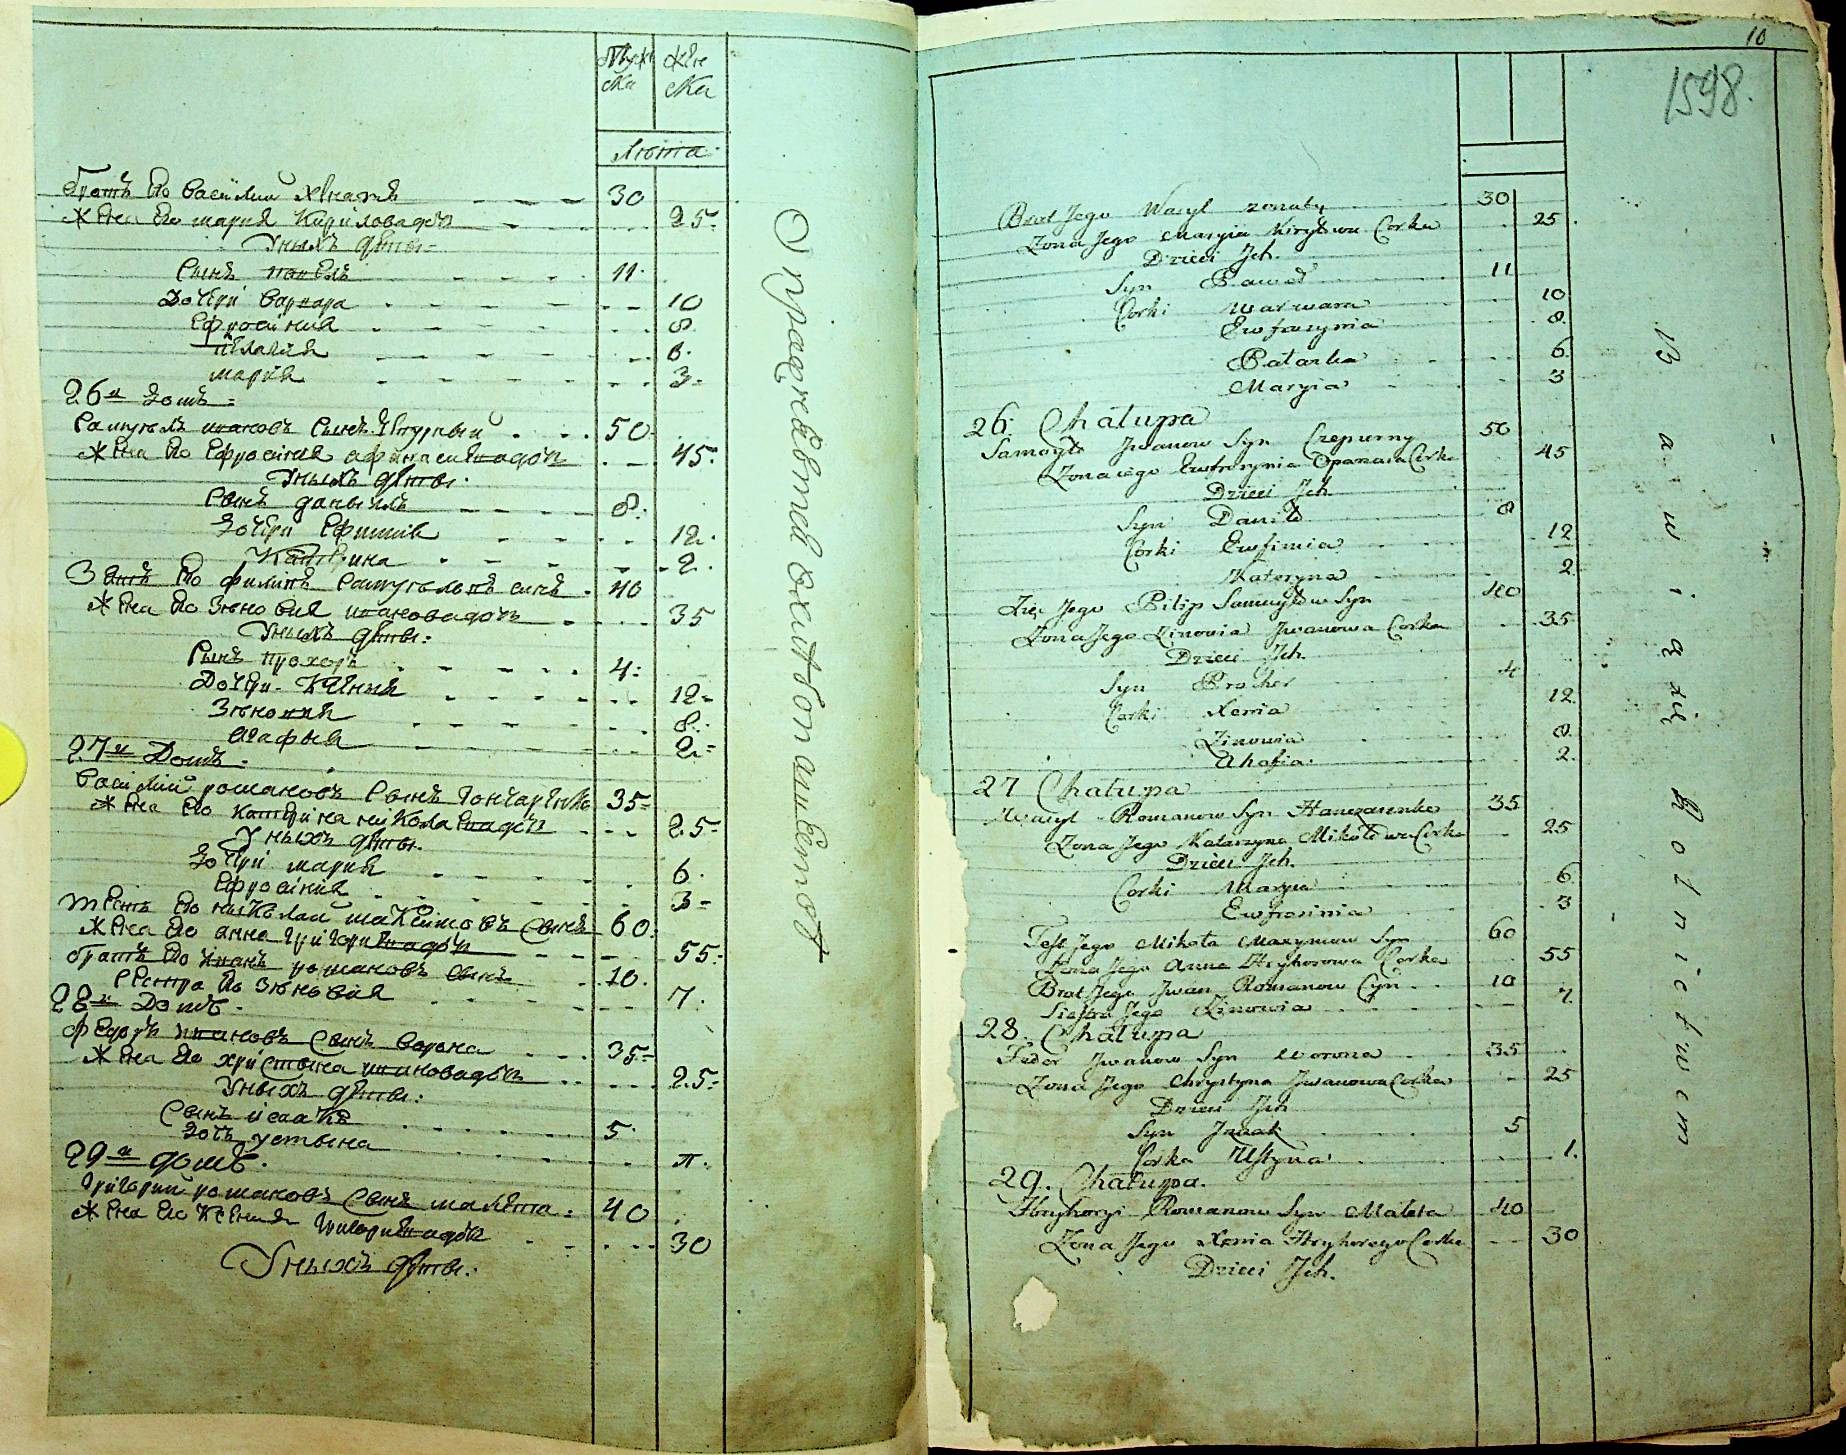 Муж Жен
ска ска
Лѣта
Братъ его Василий жѣнатй 30
Жена его мария Кириловадоч 25
Унихъ дѣти
Сынъ павелъ 11
Дочери варвара 10
Ефросиния 8
пелагия 6
мария 3
26й домъ
Самуилъ ивановъ Сынъ Чепурный 50
Жена его Ефросиния афанасиевадоч 45
Унихъ дѣти
Сынъ данъилъ 8
дочери Ефимия 12
Катерина 2
Зять его филипъ Самуиловъ синъ 40
Жена его Зѣновия ивановадочъ 35
Унихъ дѣти
Сынъ прохоръ 4
Дочери Ксения 12
Зѣновия 8
агафия 2
27й Домъ
Василий романовъ Сынъ Гончаренко 35
Жена его Катерина николаевадоч 25
Унихъ дѣти
дочери мария 6
Ефросиния 3
тесть его николай максимовъ Синъ 60
Жена его анна григориевадоч 55
братъ его иванъ романовъ синъ 10
Сестра его Зѣновия 7
28й Домъ
федоръ ивановъ Синъ ворона 35
Жена его христина ивановадочъ 25
Унихъ дѣти
Синъ исаакъ 5
дочь устина
29й домъ
григорий романовъ Синъ малета 40
Жена его Ксения григориевадоч 30
Унихъ дѣти
Упражняется въ хлѣбопашествѣ
10
1598.
Brat Jego Wasyl zonaty 30
Zona Jego Maryia Kiryłowa Corka 25
Dzieci Jch.
Syn Paweł 11
Corki Warwara 10
Ewfrasynia 8
Palarha 6
Maryia 3
26. Chałupa
Samoyło Jwanow Syn Czepurny 50
Zona iego Ewfrosynia Opanasa Corka 45
Dzieci Jch.
Syn Daniło 8
Corki Ewfimia 12
Kateryna 2
Zięc Jego Pilip Samuyłow Syn 40
Zona Jego Zinowia Jwanowa Corka 35
Dzieci Jch.
Syn Prohor 4
Corki Xenia 12
Zinowia 8
Ahafia 2.
27 Chałupa
Wasyl Romanow Syn Hanczarenko 35
Zona Jego Katarzyna Mikołowa Corka 25
Dzieci Jch.
Corki Marya 6
Ewfrosinia 3
Teść Jego Mikoła Maxymow Syn 60
Zona Jego Anna Hryhorowa Corka 55
Brat Jego Jwan Romanow Cyn 10
Siestra Jego Zinowia 7
28. Chałupa
Fedor Jwanow Syn Worona 35
Zona Jego Chrystyna Jwanowa Corka 25
Dzieci Jch
Syn Jzaak 5
Corka Ustyna 1.
29. Chałupa.
Hryhoryi Romanow Syn Maleta 40
Zona Jego Xenia Hryhorego Corka 30
Dzieci Jch.
Bawią się Rolnictwem